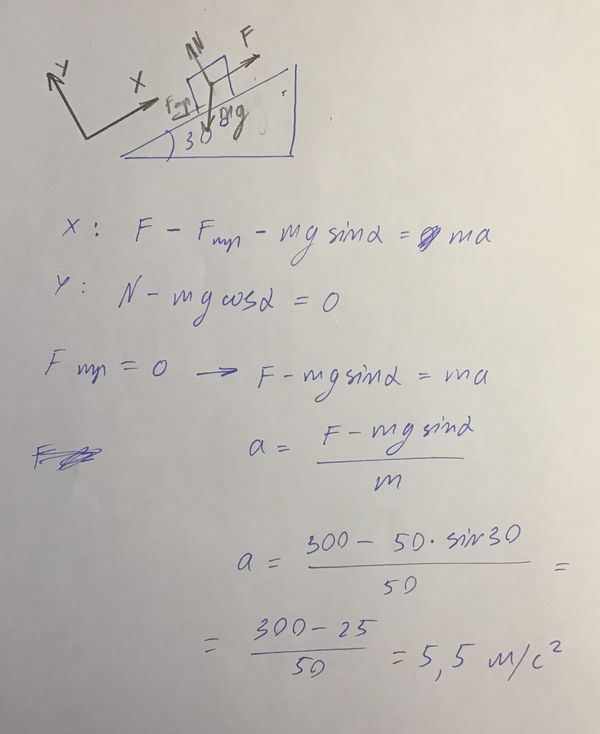 N
F
y
x
Fтр
mg
30
x: F - Fтр - mg sinα = ma
y: N - mg cosα = 0
Fтр = 0 → F - mg sinα = ma
a = (F - mg sinα) / m
a = (300 - 50 · sin 30) / 50 =
= (300 - 25) / 50 = 5,5 м/с²